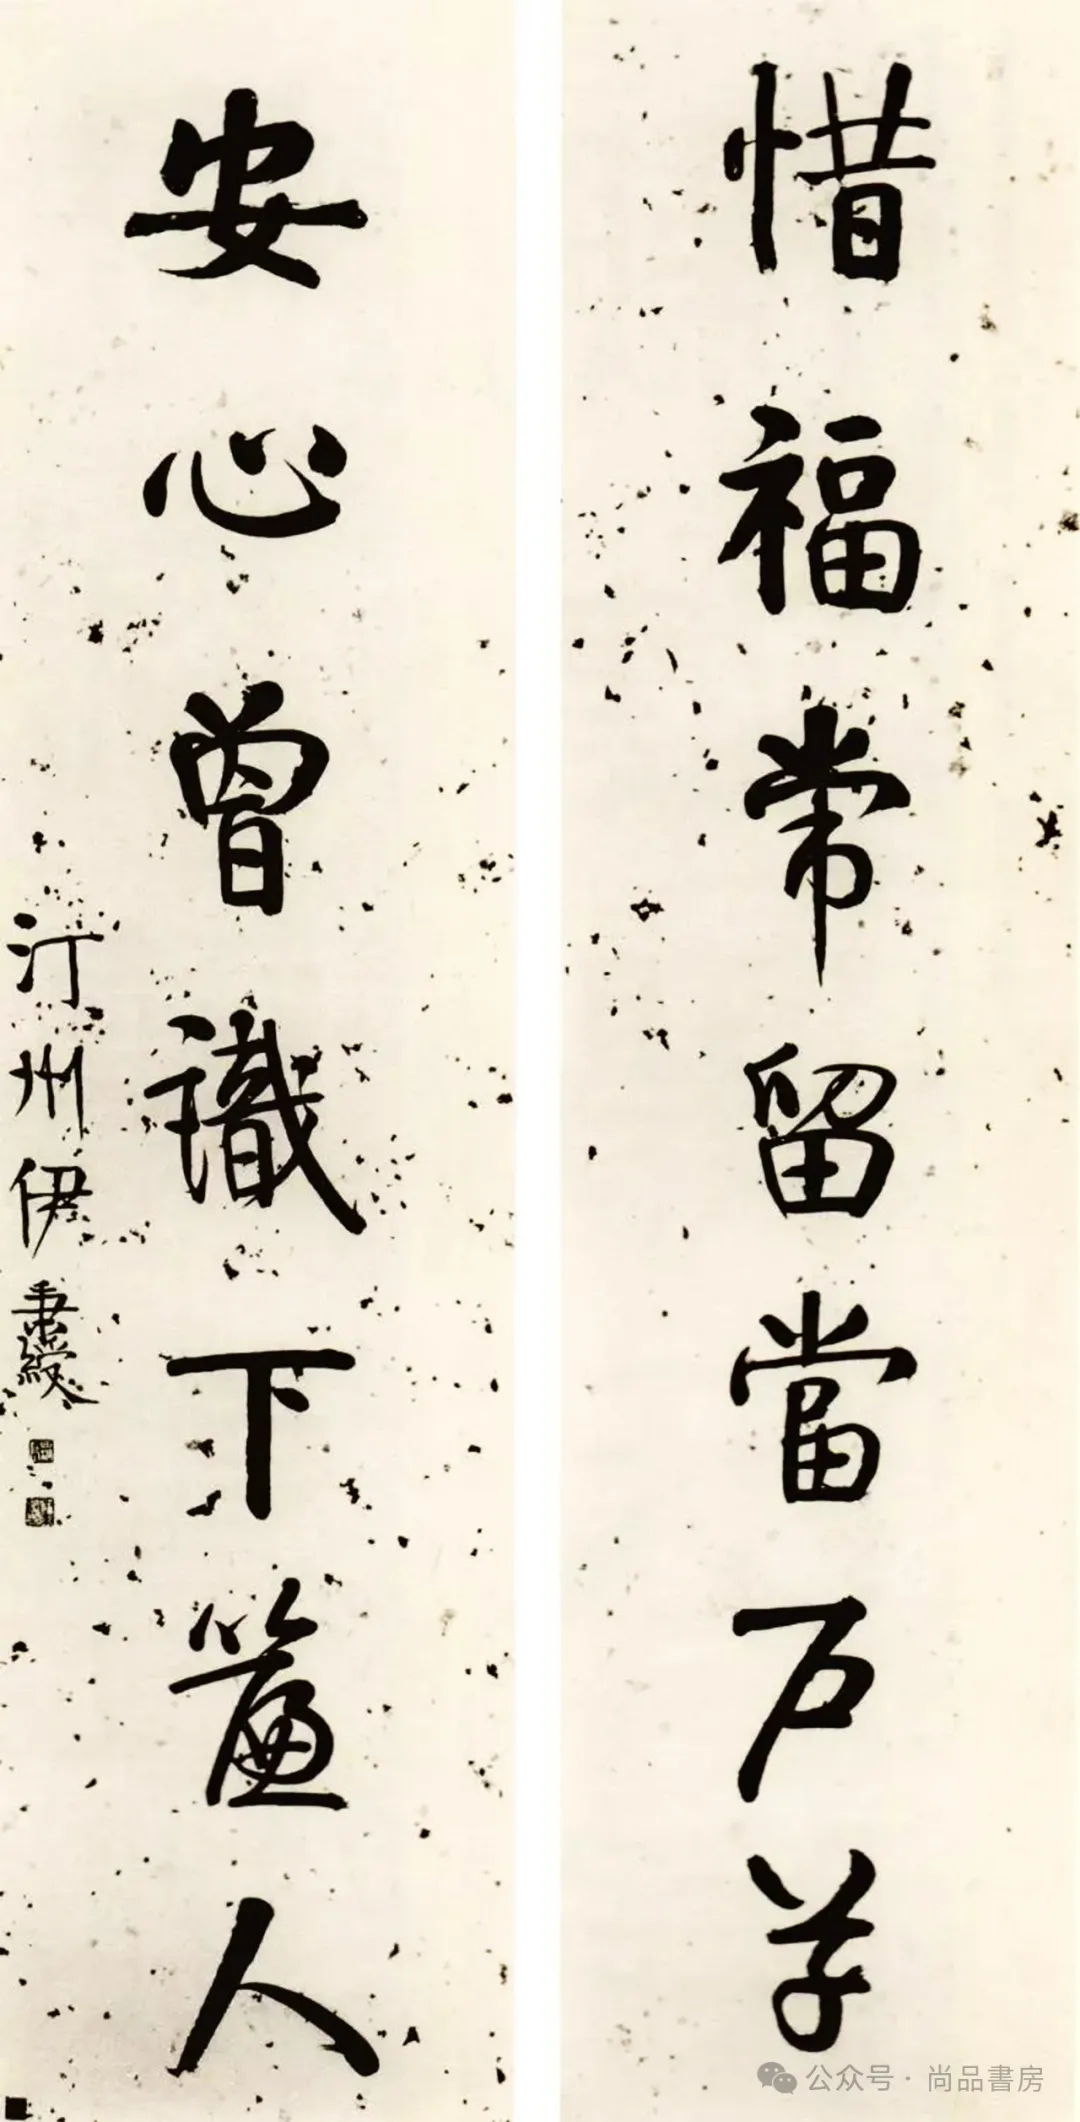 惜福常留當戶草
安心曾識下簾人
汀州伊秉綬
公众号 · 尚品書房